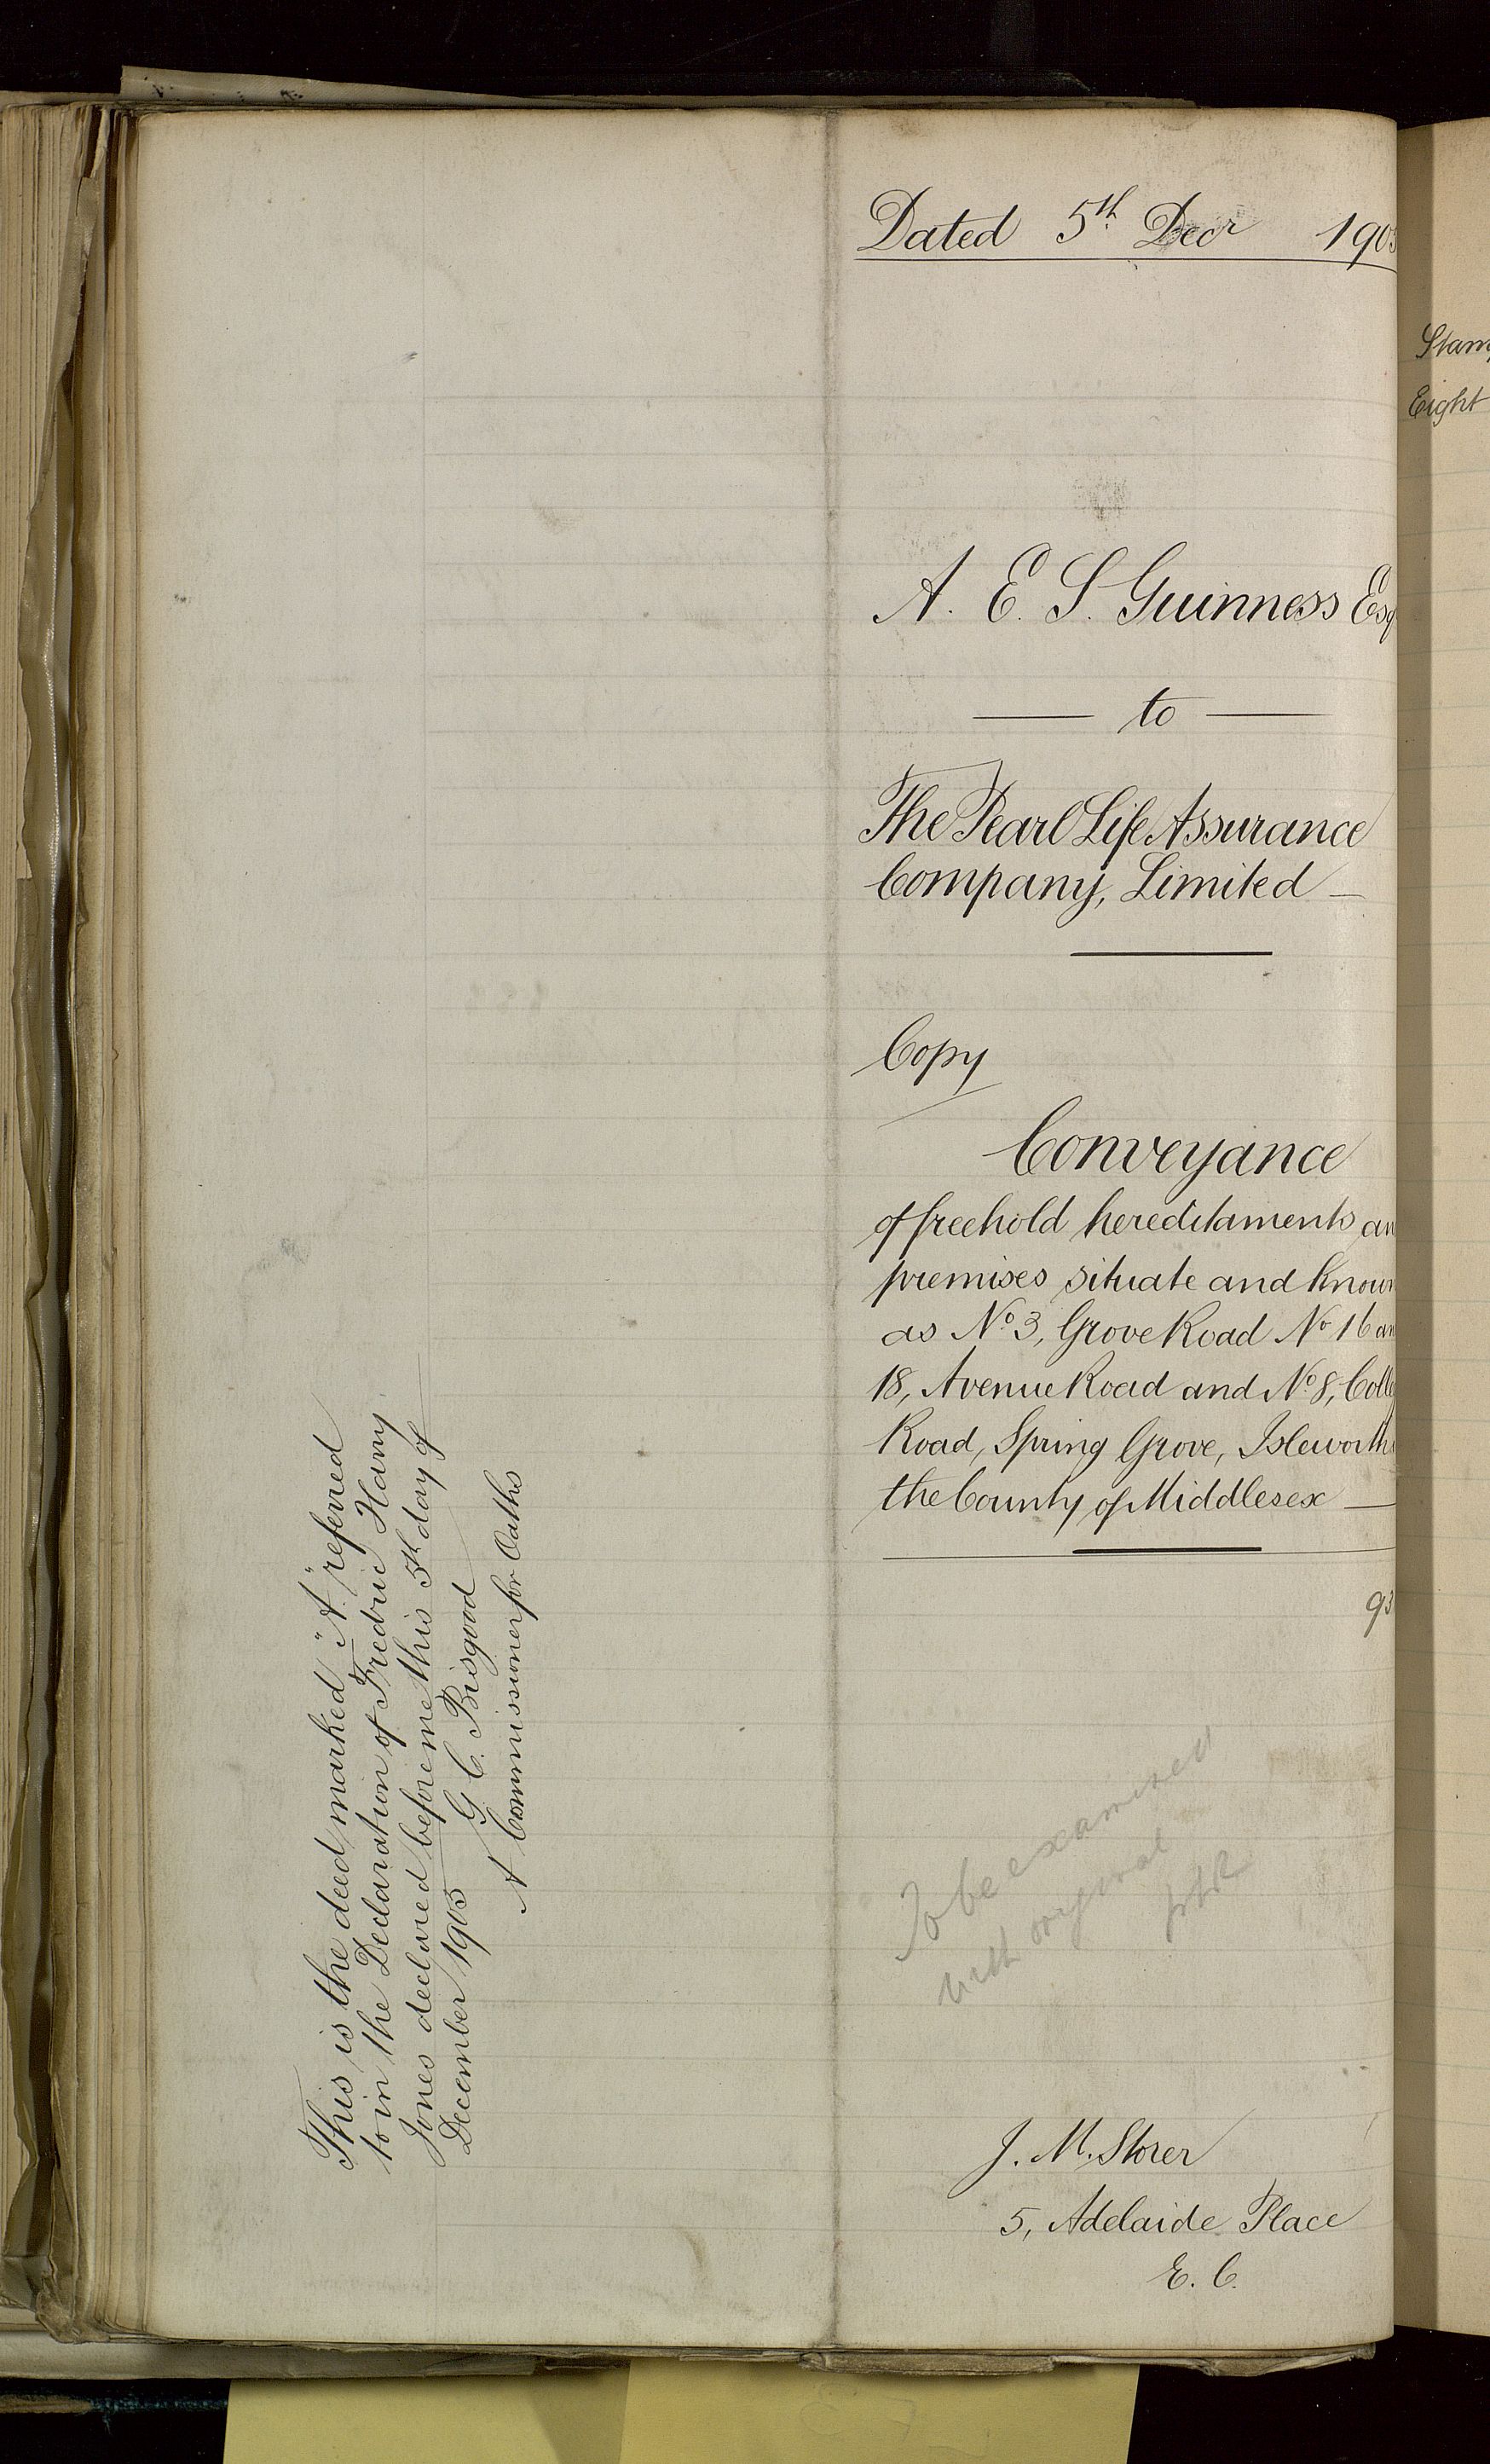 Dated 5th Decr 1903
A. E. S. Guinness Esq
— to —
The Pearl Life Assurance
Company, Limited —
Copy
Conveyance
of freehold hereditaments an
premises situate and known
as No 3, Grove Road No 16 an
18, Avenue Road and No 8, Colle
Road, Spring Grove, Isleworth
the County of Middlesex —
93
To be examined
with original
J. M. Storer
5, Adelaide Place
E. C.
This is the deed marked "A" referred
to in the Declaration of Fredric Harry
Jones declared before me this 5th day of
December 1905 G C. Bisgood
A Commissioner for Oaths
Stam
Eight